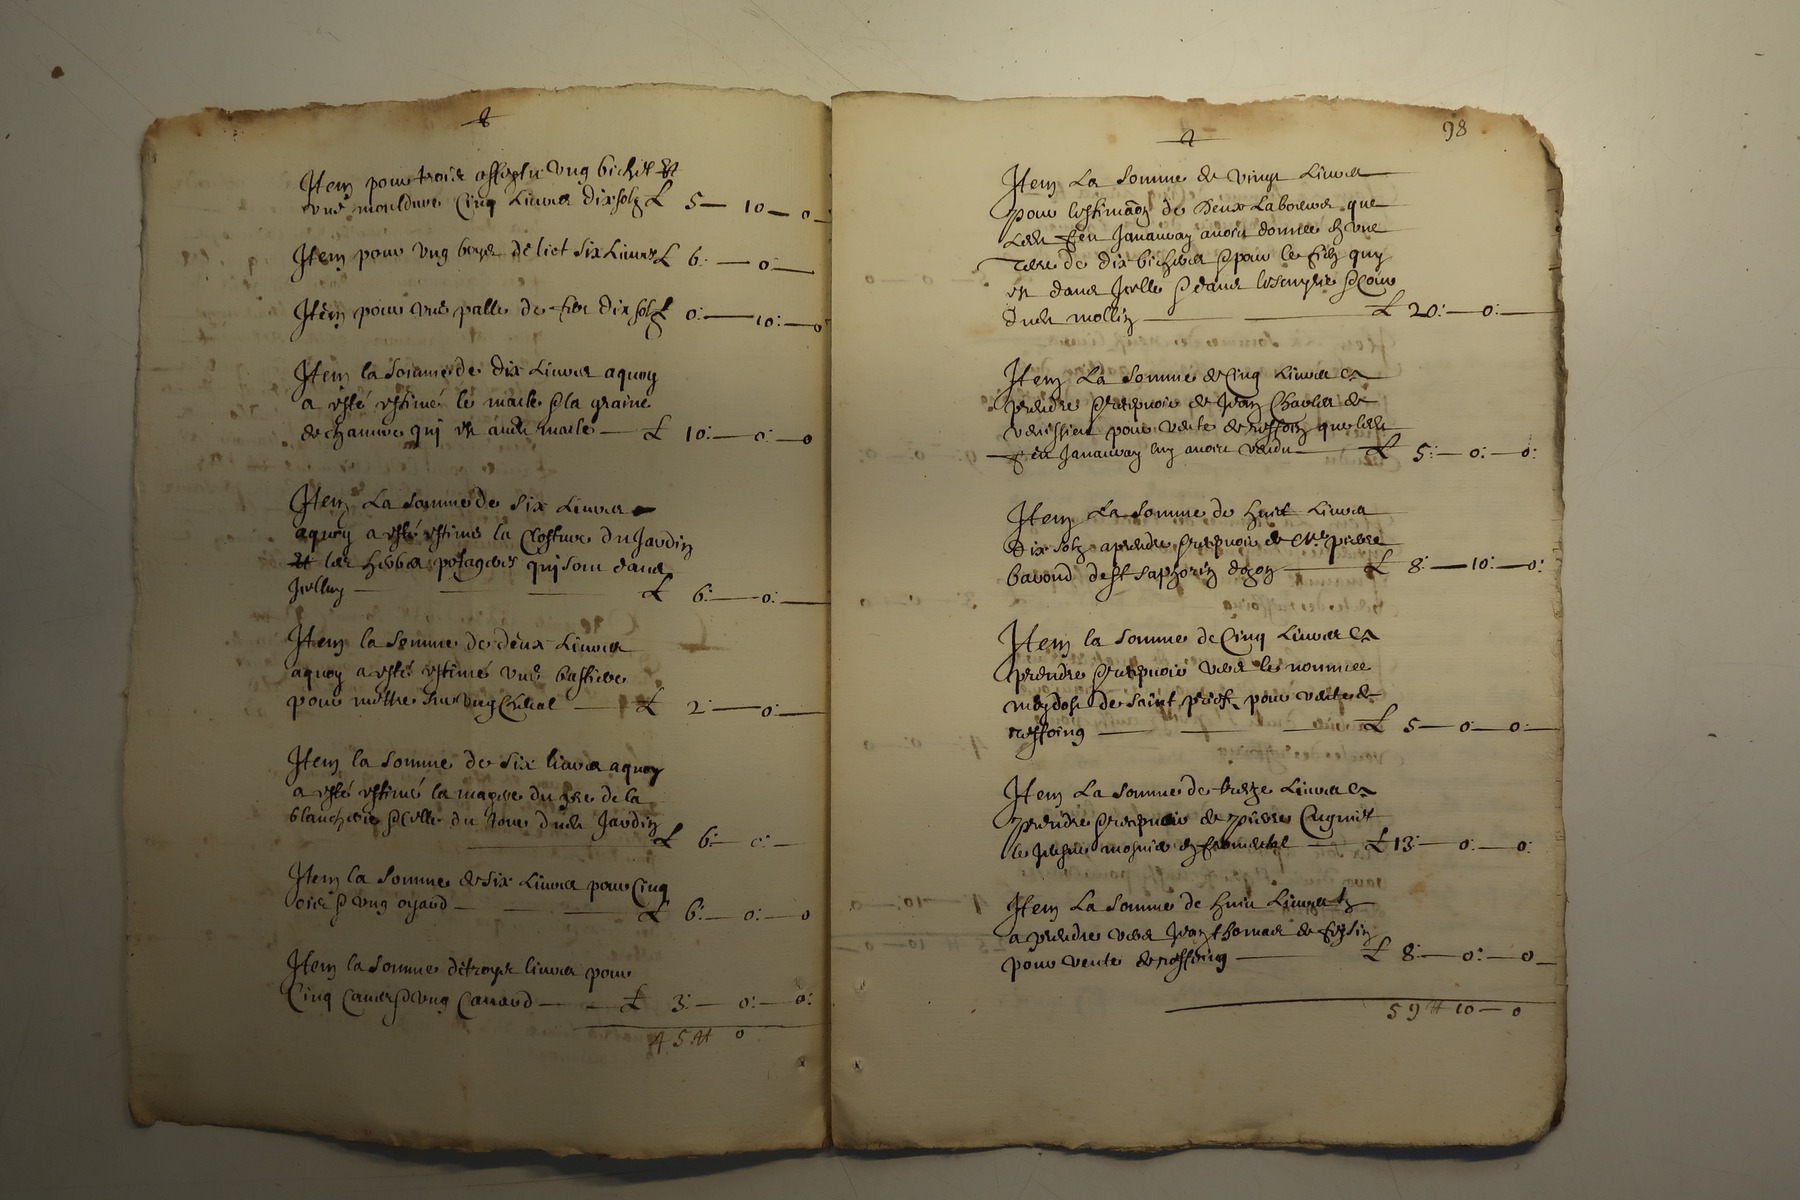 8
Item pour trois assiette ung bichet et
une mouldure Cinq Livres dix solz £ 5 — 10 — 0
Item pour ung boys de lict six Livres £ 6: — 0: —
Item pour une palle de fer dix solz £ 0: — 10: — 0
Item la somme de dix Livres aquoy
a esté estimé le masle & la graine
de chanvre qui est audit masle — £ 10: — 0: — 0
Item La somme de six Livres
aquoy a esté estimé la Closture du Jardin
et les herbes potageres qui sont dans
Jcelluy — £ 6: — 0: —
Item la somme de deux Livres
aquoy a esté estimé une bastiere
pour mettre sur ung Cheval — £ 2: — 0: —
Item la somme de six livres aquoy
a esté estimé la de la
blancherie & Celle du dudit Jardin
£ 6: — 0: —
Item la somme de six Livres pour Cinq
oies & ung oyard — £ 6: — 0: — 0
Item la somme de troys livres pour
Cinq Canes & ung Canard — £ 3: — 0: — 0:
45 ₶ 0
98
9
Item La somme de vingt Livres
pour lestimaõn de deux Laboures que
Ledit feu Janauray avoir donnee en une
terre de dix bichetes & pour le qui
est dans Jcelle & dans
dudit mollin — £ 20: — 0: —
Item La somme de Cinq Livres a
prendre & recepvoir de Jean Charles de
verissieu pour vente de que ledit
feu Janauray luy avoir vendu — £ 5: — 0: — 0:
Item La somme de huict Livres
dix solz aprendre & recepvoir de Mre pierre
bavoud de st saphorin dozon — £ 8: — 10: — 0:
Item la somme de Cinq Livres a
prendre & recepvoir vers le nommee
de saint pour vente de
— £ 5 — 0: — 0: —
Item La somme de treze Livres a
prendre & recepvoir de pierre Cugniet
le — £ 13: — 0: — 0:
Item La somme de huict Livres
a prendre vers Jean thomas de
pour vente de — £ 8: — 0: — 0
59 ₶ 10 — 0